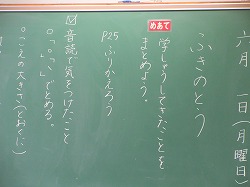 六月 一日(月曜日)
ふきのとう
めあて
学しゅうしてきたことを
まとめよう。
P25 ふりかえろう
☑ 音読で気をつけたこと
○「。」「、」でとめる。
○こえの大きさ(とおくに)